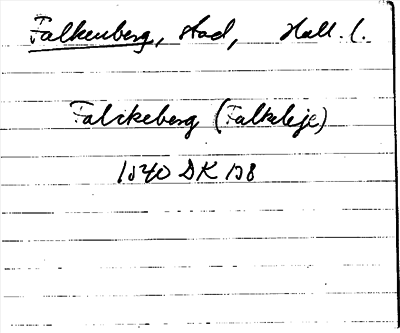 Falkenberg, stad, Hall. l.
Falckeberg (Falkeleje)
1540 DK 128